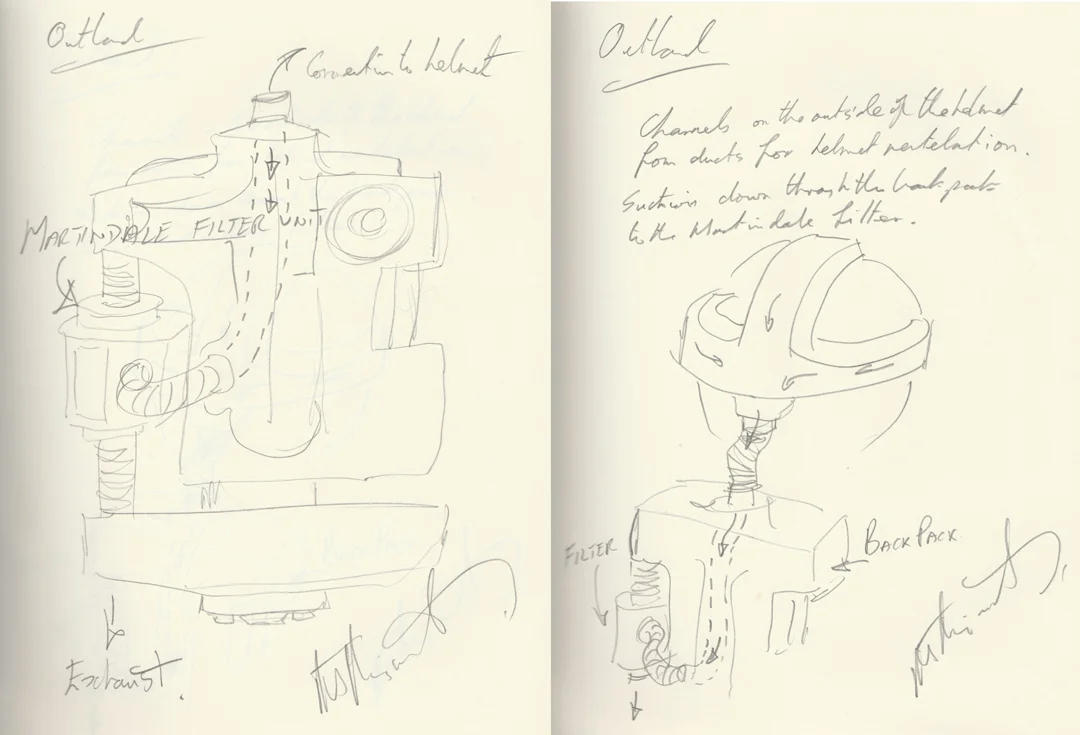 Outland
Connection to helmet
MARTINDALE FILTER UNIT
Exhaust.
Outland
Channels on the outside of the helmet
form ducts for helmet ventelation.
Suction down through the back pack
to the Martindale filter.
FILTER
BACK PACK